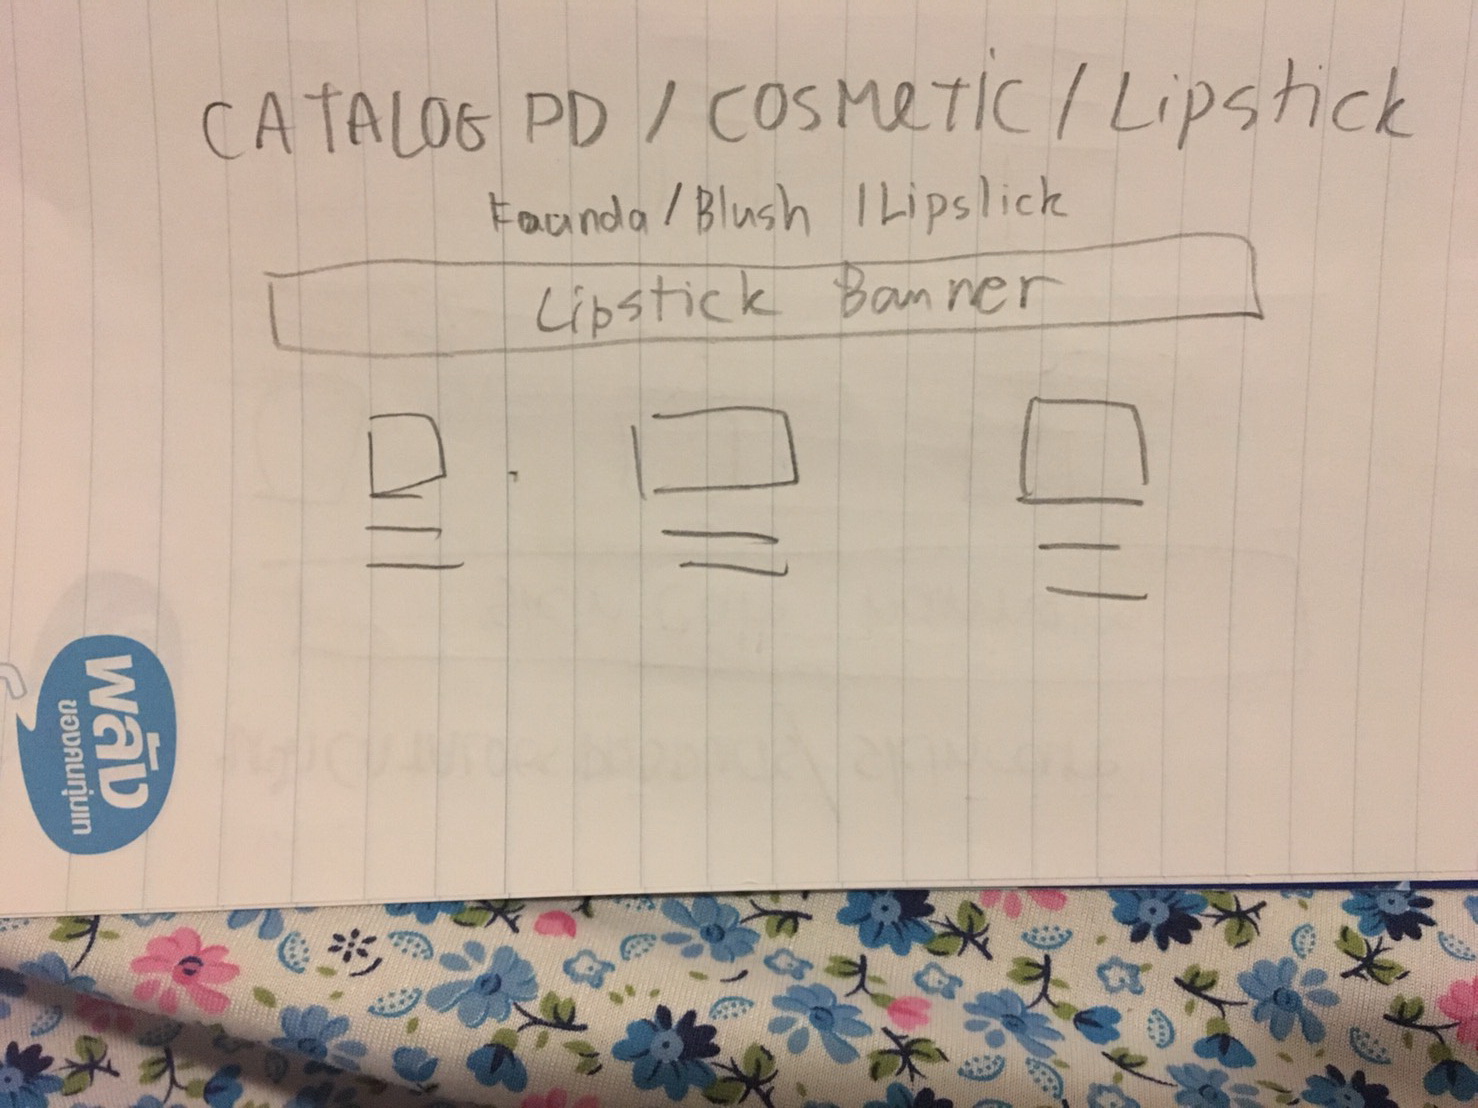 CATALOG PD / COSMETIC / Lipstick
Faunda / Blush / Lipslick
Lipstick Banner
พลัง
ของคนทุ่มเท